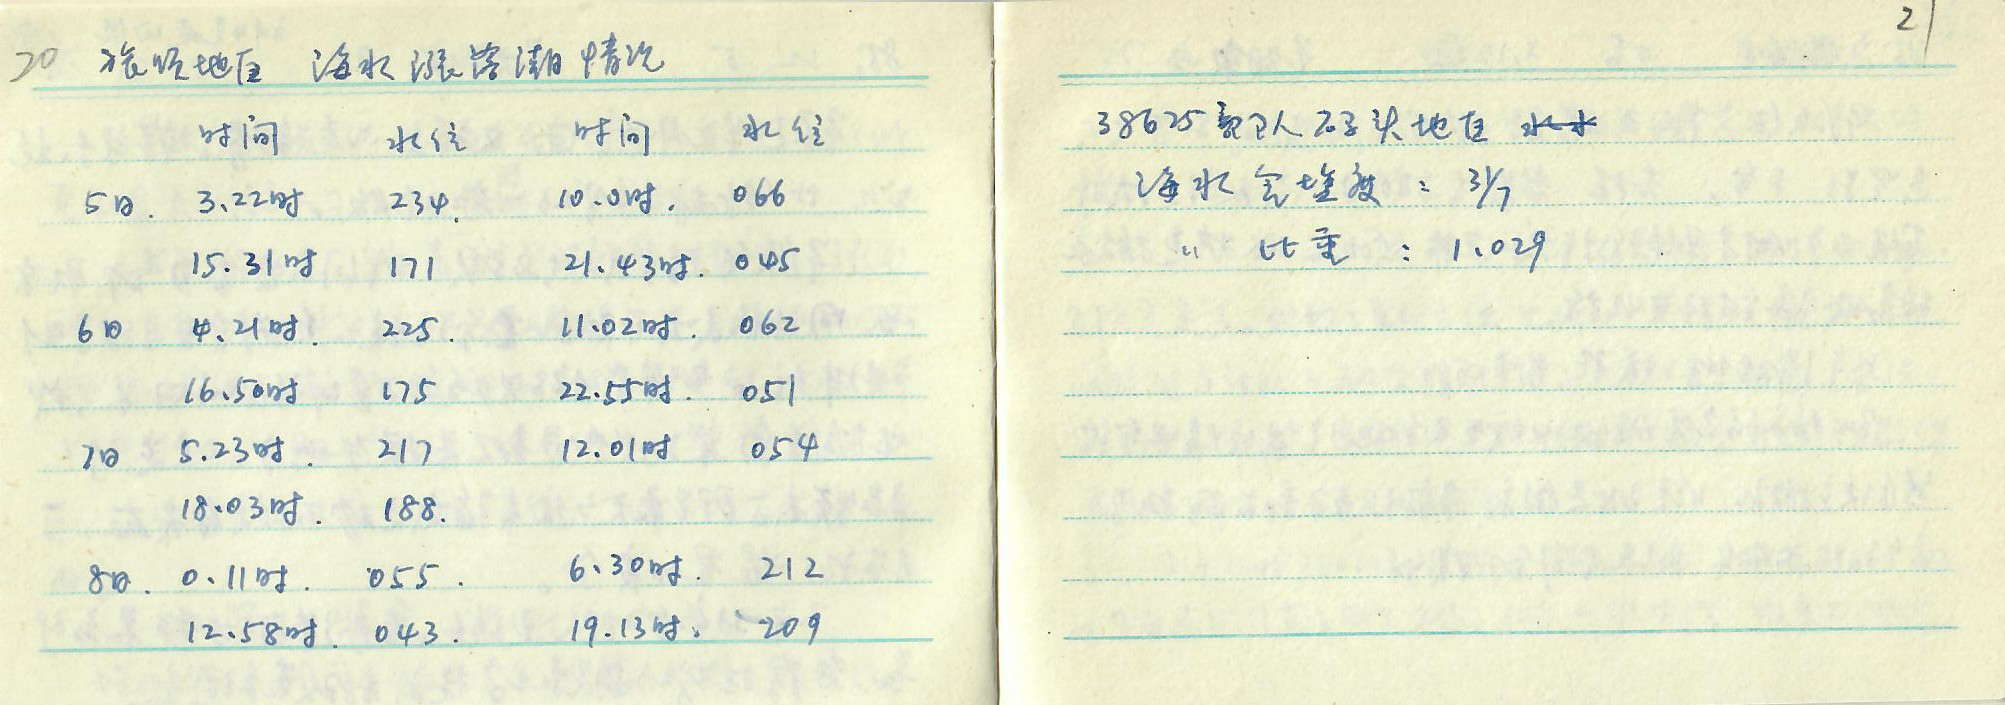 20 旅顺地区 海水涨落潮情况
时间 水位 时间 水位
5日. 3.22时 234. 10.0时. 066
15.31时 171 21.43时. 045
6日 4.21时. 225. 11.02时. 062
16.50时 175 22.55时. 051
7日 5.23时. 217 12.01时 054
18.03时. 188.
8日. 0.11时. 055. 6.30时. 212
12.58时. 043. 19.13时. 209
21
38625部队码头地区
海水含盐度: 31/7
〃 比重: 1.029